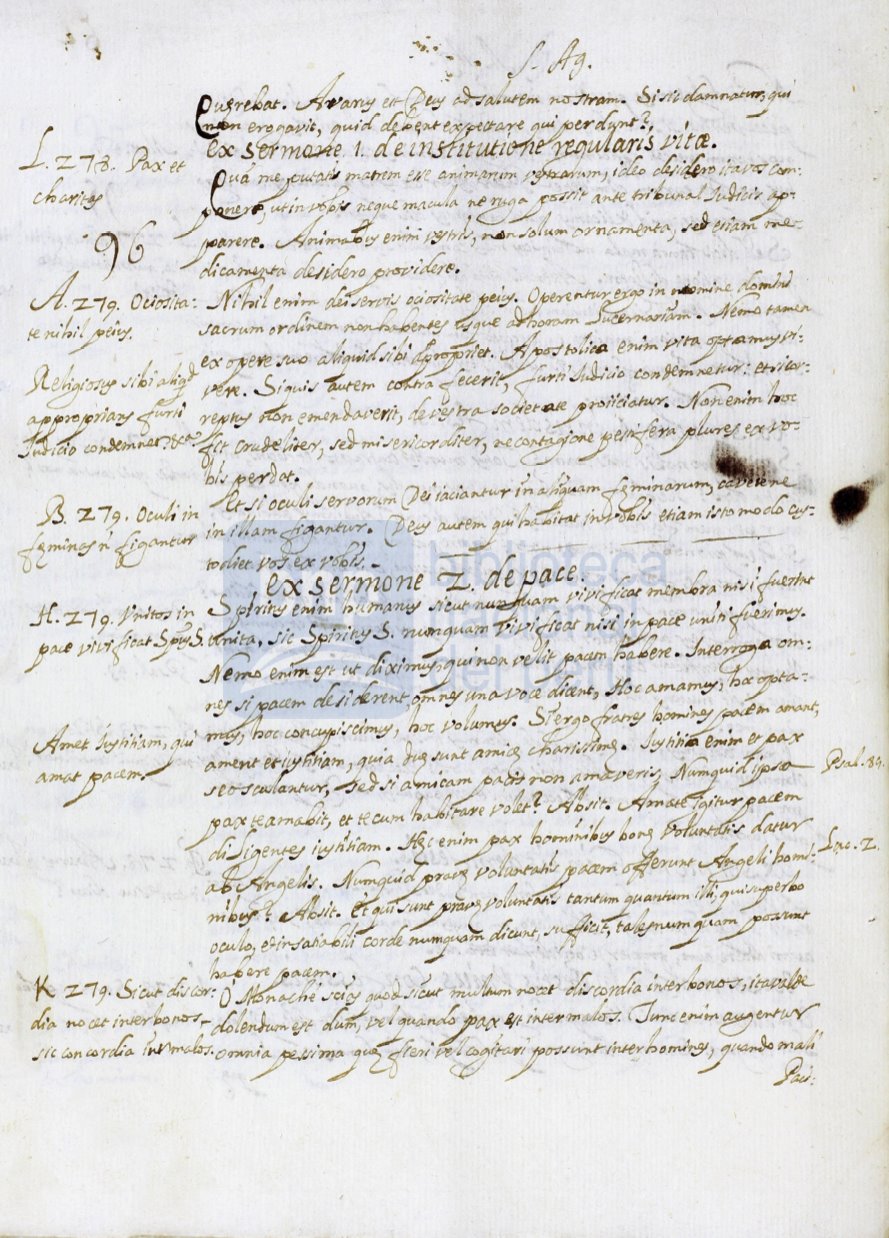 S. Ag.
Querebat. Avarus est Deus ad salutem nostram. Si sic damnatur, qui
non erogavit, quid debent expectare qui perdunt?,
Ex sermone 1. de institutione regularis vitæ.
L. 278. Pax et
charitas
Quia me putatis matrem esse animarum vestrarum, ideo desidero ita vos com-
ponere, ut in vobis neque macula ne ruga possit ante tribunal Iudicis ap-
96
parere. Animabus enim vestris, non solum ornamenta, sed etiam me-
dicamenta desidero providere.
A. 279. Ociosita-
te nihil peius.
Nihil enim dei servis ociositate peius. Operentur ergo in nomine domini
sacrum ordinem non habentes usque ad horam Lucernariam. Nemo tamen
ex opere suo aliquid sibi appropriet. Apostolica enim vita optamus vi-
Religiosus sibi aliqd
approprians furti
Iudicio condemnet &ca.
vere. Siquis autem contra fecerit, furti Iudicio condemnetur: et si cor-
reptus non emendaverit, de vestra societate proiiciatur. Non enim hoc
fit crudeliter, sed misericorditer, ne contagione pestifera plures ex vo-
bis perdat.
B. 279. Oculi in
feminas n̄ figantur
Et si oculi servorum Dei iaciantur in aliquam feminarum, cavete ne
in illam figantur. Deus autem qui habitat in vobis etiam isto modo cus-
todiet vos ex vobis.
Ex sermone 2. de pace.
H. 279. Unitos in
pace vivificat Spūs S.
Spiritus enim humanus sicut nunquam vivificat membra nisi fuerint
unita, sic Spiritus S. numquam vivificat nisi in pace uniti fuerimus.
Nemo enim est ut diximus, qui non velit pacem habere. Interroga om-
nes si pacem desiderent, omnes una voce dicent, Hoc amamus, hoc opta-
mus, hoc concupiscimus, hoc volumus. Si ergo fratres homines pacem amant,
Amet Iustitiam, qui
amat pacem.
ament et iustitiam, quia duę sunt amicę charissimę. Iustitia enim et pax
Psal. 84.
se osculantur, sed si amicam pacis non amaveris, Numquid ipsa
pax te amabit, et tecum habitare volet? Absit. Amate igitur pacem
diligentes iustitiam. Hęc enim pax hominibus bonę voluntatis datur
Luc. 2.
ab Angelis. Numquid pravę voluntatis pacem offerunt Angeli homi-
nibus? Absit. Et qui sunt pravę voluntatis tantum quantum illi, qui superbo
oculo, et insatiabili corde numquam dicunt, sufficit, tales numquam possunt
habere pacem.
K 279. Sicut discor-
dia nocet inter bonos
sic concordia inter malos.
O Monachi scitis quod sicut multum nocet discordia inter bonos, ita valde
dolendum est dum, vel quando pax est inter malos. Tunc enim augentur
omnia pessima quę fieri vel cogitari possunt inter homines, quando mali
Paci-
biblioteca
nacional
del perú